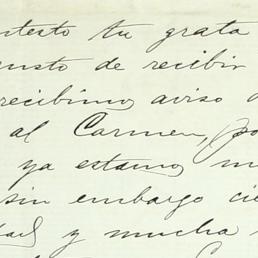 ntesto tu grata
gusto de recibir
recibimos aviso d
al Carmen, po
ya estamos m
sin embargo cie
dad y mucha